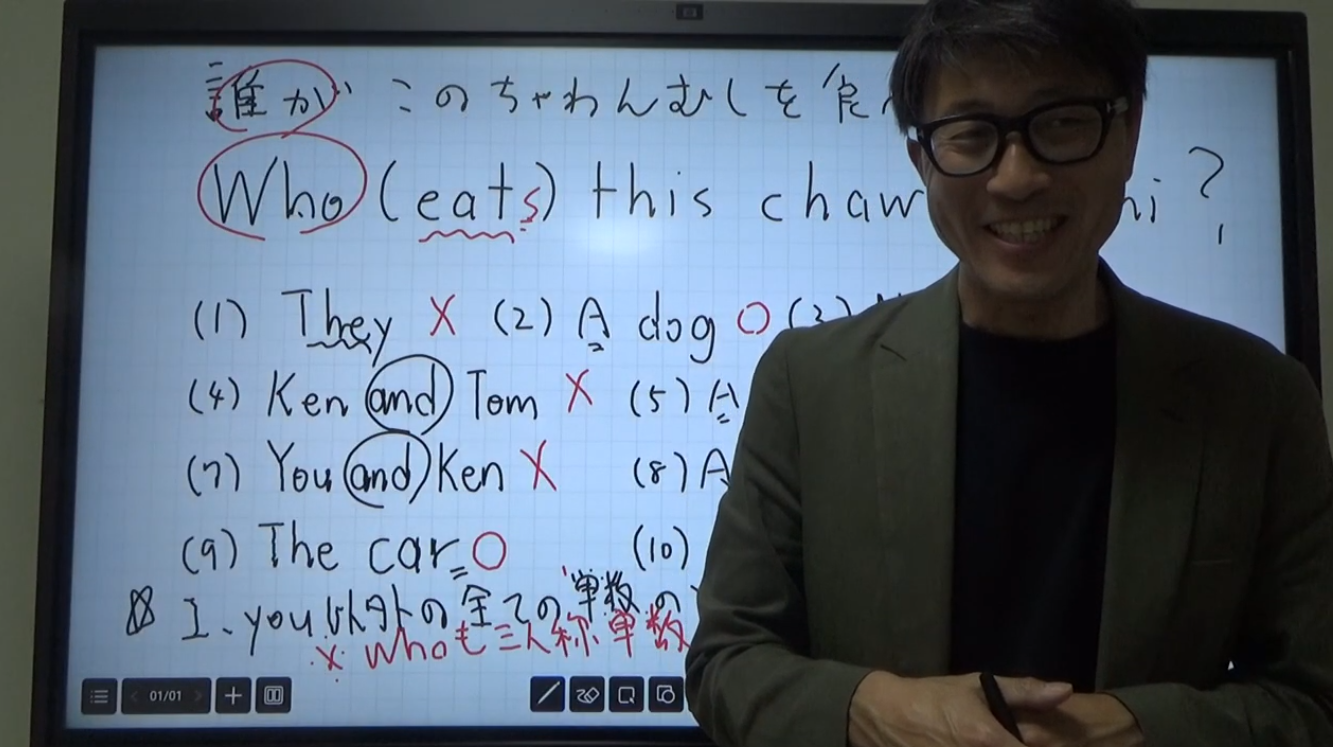 誰が このちゃわんむしを食
Who (eats) this chaw ?
(1) They X (2) A dog O (3)
(4) Ken and Tom X (5) A
(7) You and Ken X (8) A
(9) The car O (10)
I、you以外の全ての単数の
※ whoも三人称単数
01/01